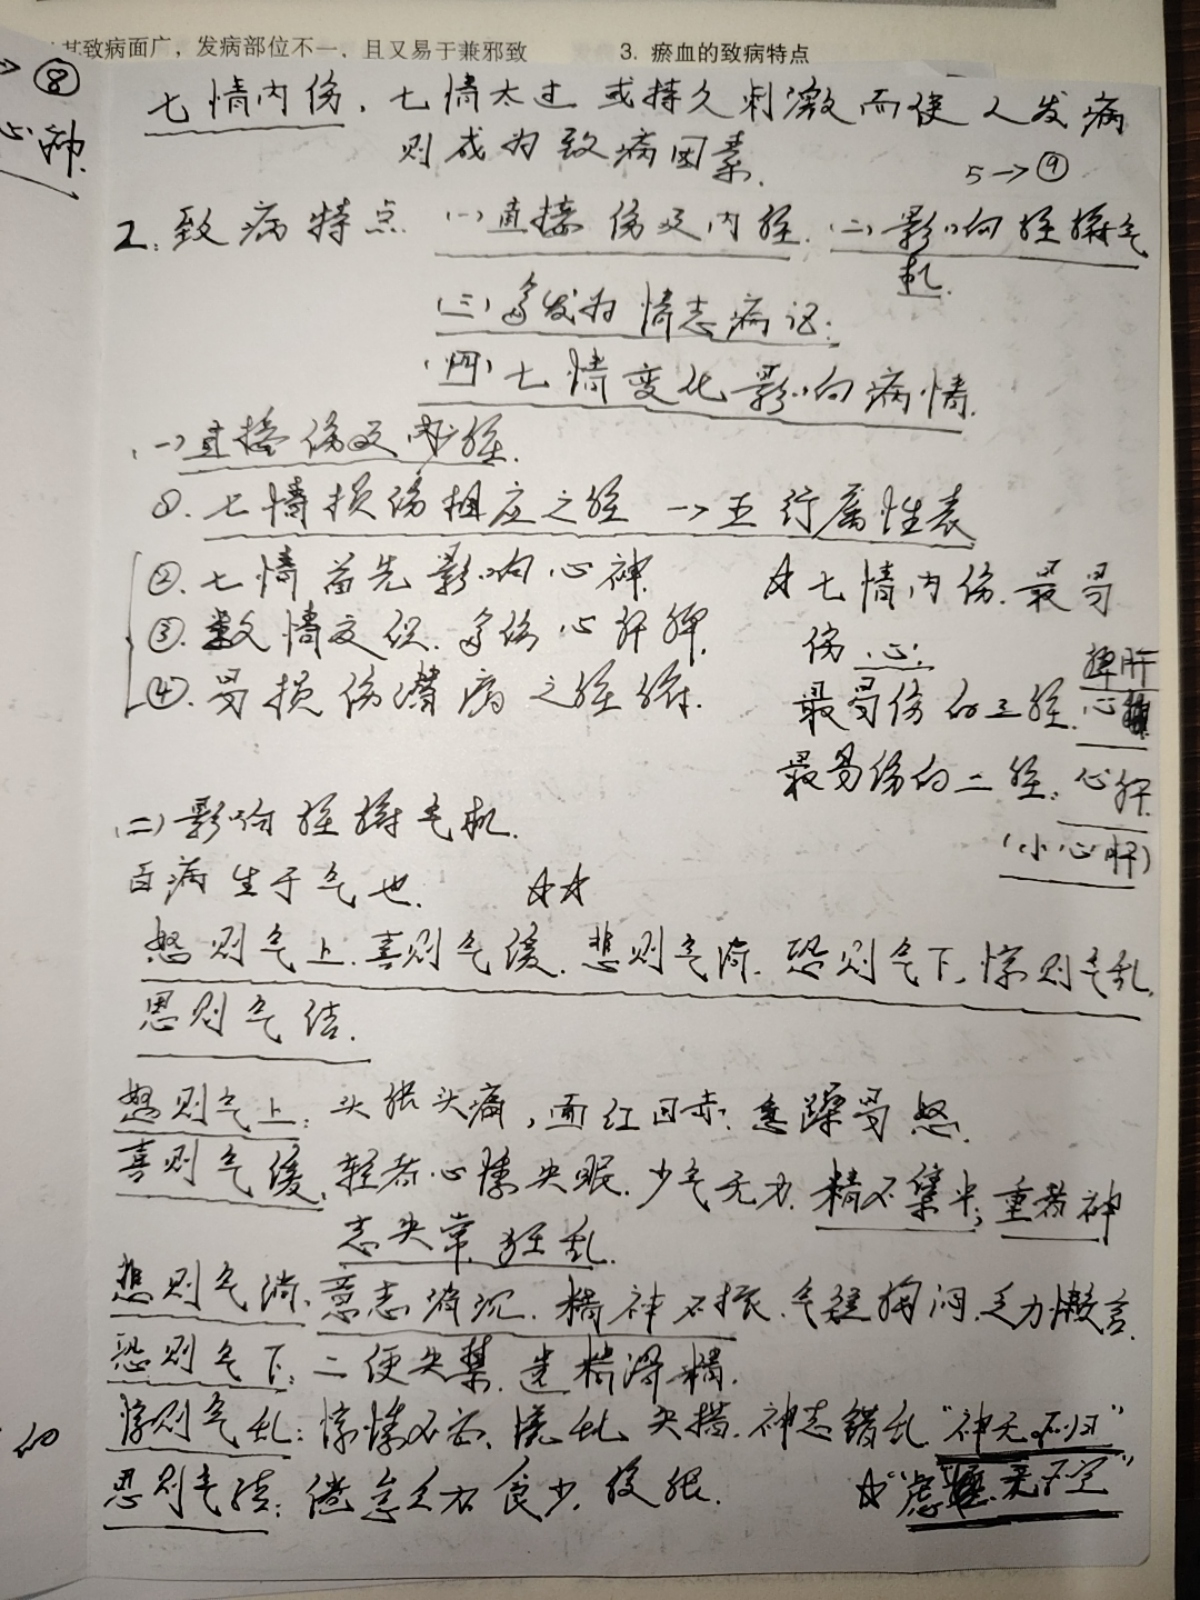 其致病面广，发病部位不一，且又易于兼邪致
3. 瘀血的致病特点
⑧
心神.
七情内伤，七情太过或持久刺激而使人发病
则成为致病因素.
5→⑨
2.致病特点 (一)直接伤及内脏.(二)影响脏腑气
机.
(三)多发为情志病证:
(四)七情变化影响病情.
(一)直接伤及内脏.
①.七情损伤相应之脏→五行属性表
②.七情首先影响心神.
③.数情交织.多伤心肝脾.
④.易损伤潜病之脏腑.
☆七情内伤.最易
伤心.
最易伤的三脏.脾肝
心
最易伤的二脏:心肝.
(小心肝)
(二)影响脏腑气机.
百病生于气也. ☆☆
怒则气上.喜则气缓.悲则气消.恐则气下.惊则气乱.
思则气结.
怒则气上:头胀头痛,面红目赤.急躁易怒.
喜则气缓,轻者心悸失眠.少气无力.精不集中;重者神
志失常.狂乱.
悲则气消、意志消沉.精神不振.气短胸闷.乏力懒言.
恐则气下:二便失禁.遗精滑精.
惊则气乱:惊悸不安、慌乱失措.神志错乱“神无所归”
思则气结:倦怠乏力食少.腹胀.
☆“虑无所定”